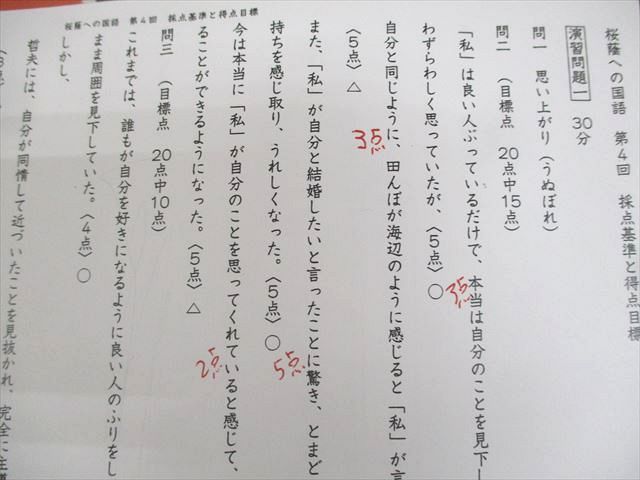 桜蔭への国語 第4回 採点基準と得点目標
桜蔭への国語 第4回 採点基準と得点目標
演習問題一 30分
問一 思い上がり(うぬぼれ)
問二 (目標点 20点中15点)
「私」は良い人ぶっているだけで、本当は自分のことを見下し
わずらわしく思っていたが、〈5点〉○
3点
自分と同じように、田んぼが海辺のように感じると「私」が言
〈5点〉△
3点
また、「私」が自分と結婚したいと言ったことに驚き、とまど
持ちを感じ取り、うれしくなった。〈5点〉○
5点
今は本当に「私」が自分のことを思ってくれていると感じて、
ることができるようになった。〈5点〉△
2点
問三 (目標点 20点中10点)
これまでは、誰もが自分を好きになるように良い人のふりをし
まま周囲を見下していた。〈4点〉○
しかし、
哲夫には、自分が同情して近づいたことを見抜かれ、完全に主導